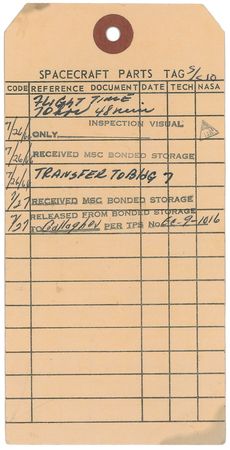 SPACECRAFT PARTS TAG S/C 10
CODE REFERENCE DOCUMENT DATE TECH NASA
FLIGHT TIME
70 HR 48 min
INSPECTION VISUAL
7/26/66 ONLY
7/26/66 RECEIVED MSC BONDED STORAGE
7/26/66 TRANSFER TO BLDG 7
7/27 RECEIVED MSC BONDED STORAGE
RELEASED FROM BONDED STORAGE
7/27 TO Gallagher PER TPS NO EC-9-1016